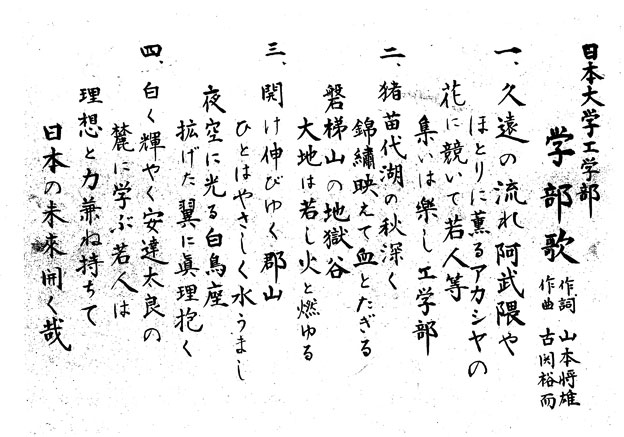 日本大学工学部
学部歌
作詞 山本将雄
作曲 古関裕而
一、久遠の流れ阿武隈や
ほとりに薫るアカシヤの
花に競いて若人等
集いは樂し工学部
二、猪苗代湖の秋深く
錦繡映えて血とたぎる
磐梯山の地獄谷
大地は若し火と燃ゆる
三、開け伸びゆく郡山
ひとはやさしく水うまし
夜空に光る白鳥座
拡げた翼に眞理抱く
四、白く輝やく安達太良の
麓に学ぶ若人は
理想と力兼ね持ちて
日本の未來開く哉